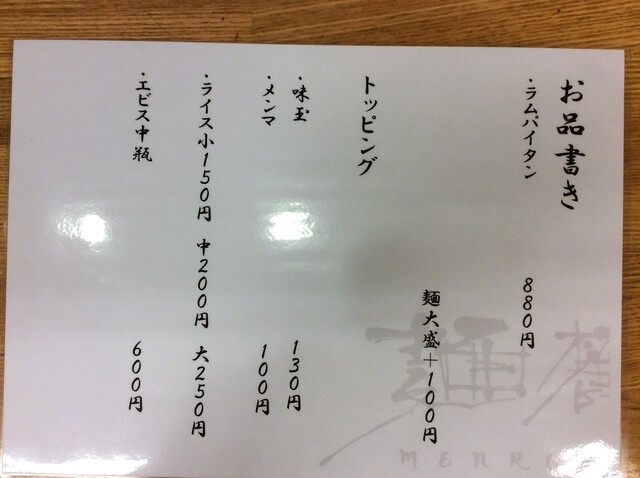 お品書き
・ラムパイタン 880円
麺大盛＋100円
トッピング
・味玉 130円
・メンマ 100円
・ライス小150円 中200円 大250円
・エビス中瓶 600円